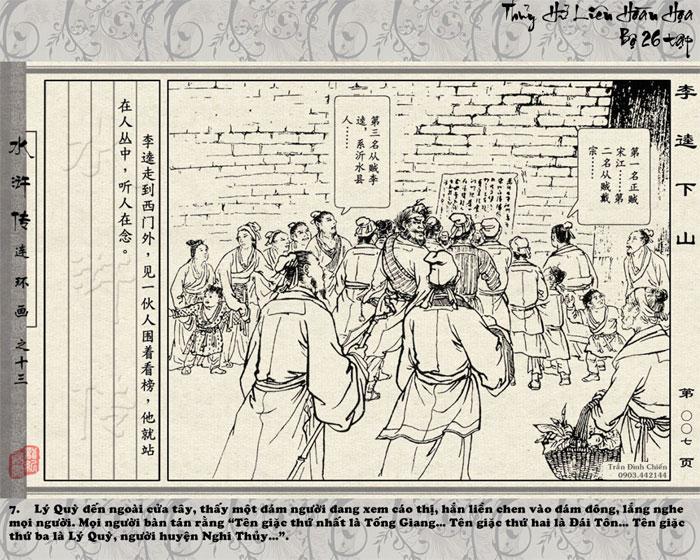 Thủy Hử Liên Hoàn Họa
Bộ 26 tập
李逵下山
第〇〇七页
第一名正贼
宋江……第
二名从贼戴
宗……
第三名从贼李
逵，系沂水县
人……
李逵走到西门外，见一伙人围着看榜，他就站
在人丛中，听人在念。
水浒传
水浒传连环画之十三
Trần Đình Chiến
0903.442144
7. Lý Quỳ đến ngoài cửa tây, thấy một đám người đang xem cáo thị, hắn liền chen vào đám đông, lắng nghe
mọi người. Mọi người bàn tán rằng “Tên giặc thứ nhất là Tống Giang... Tên giặc thứ hai là Đái Tôn... Tên giặc
thứ ba là Lý Quỳ, người huyện Nghi Thủy...”.